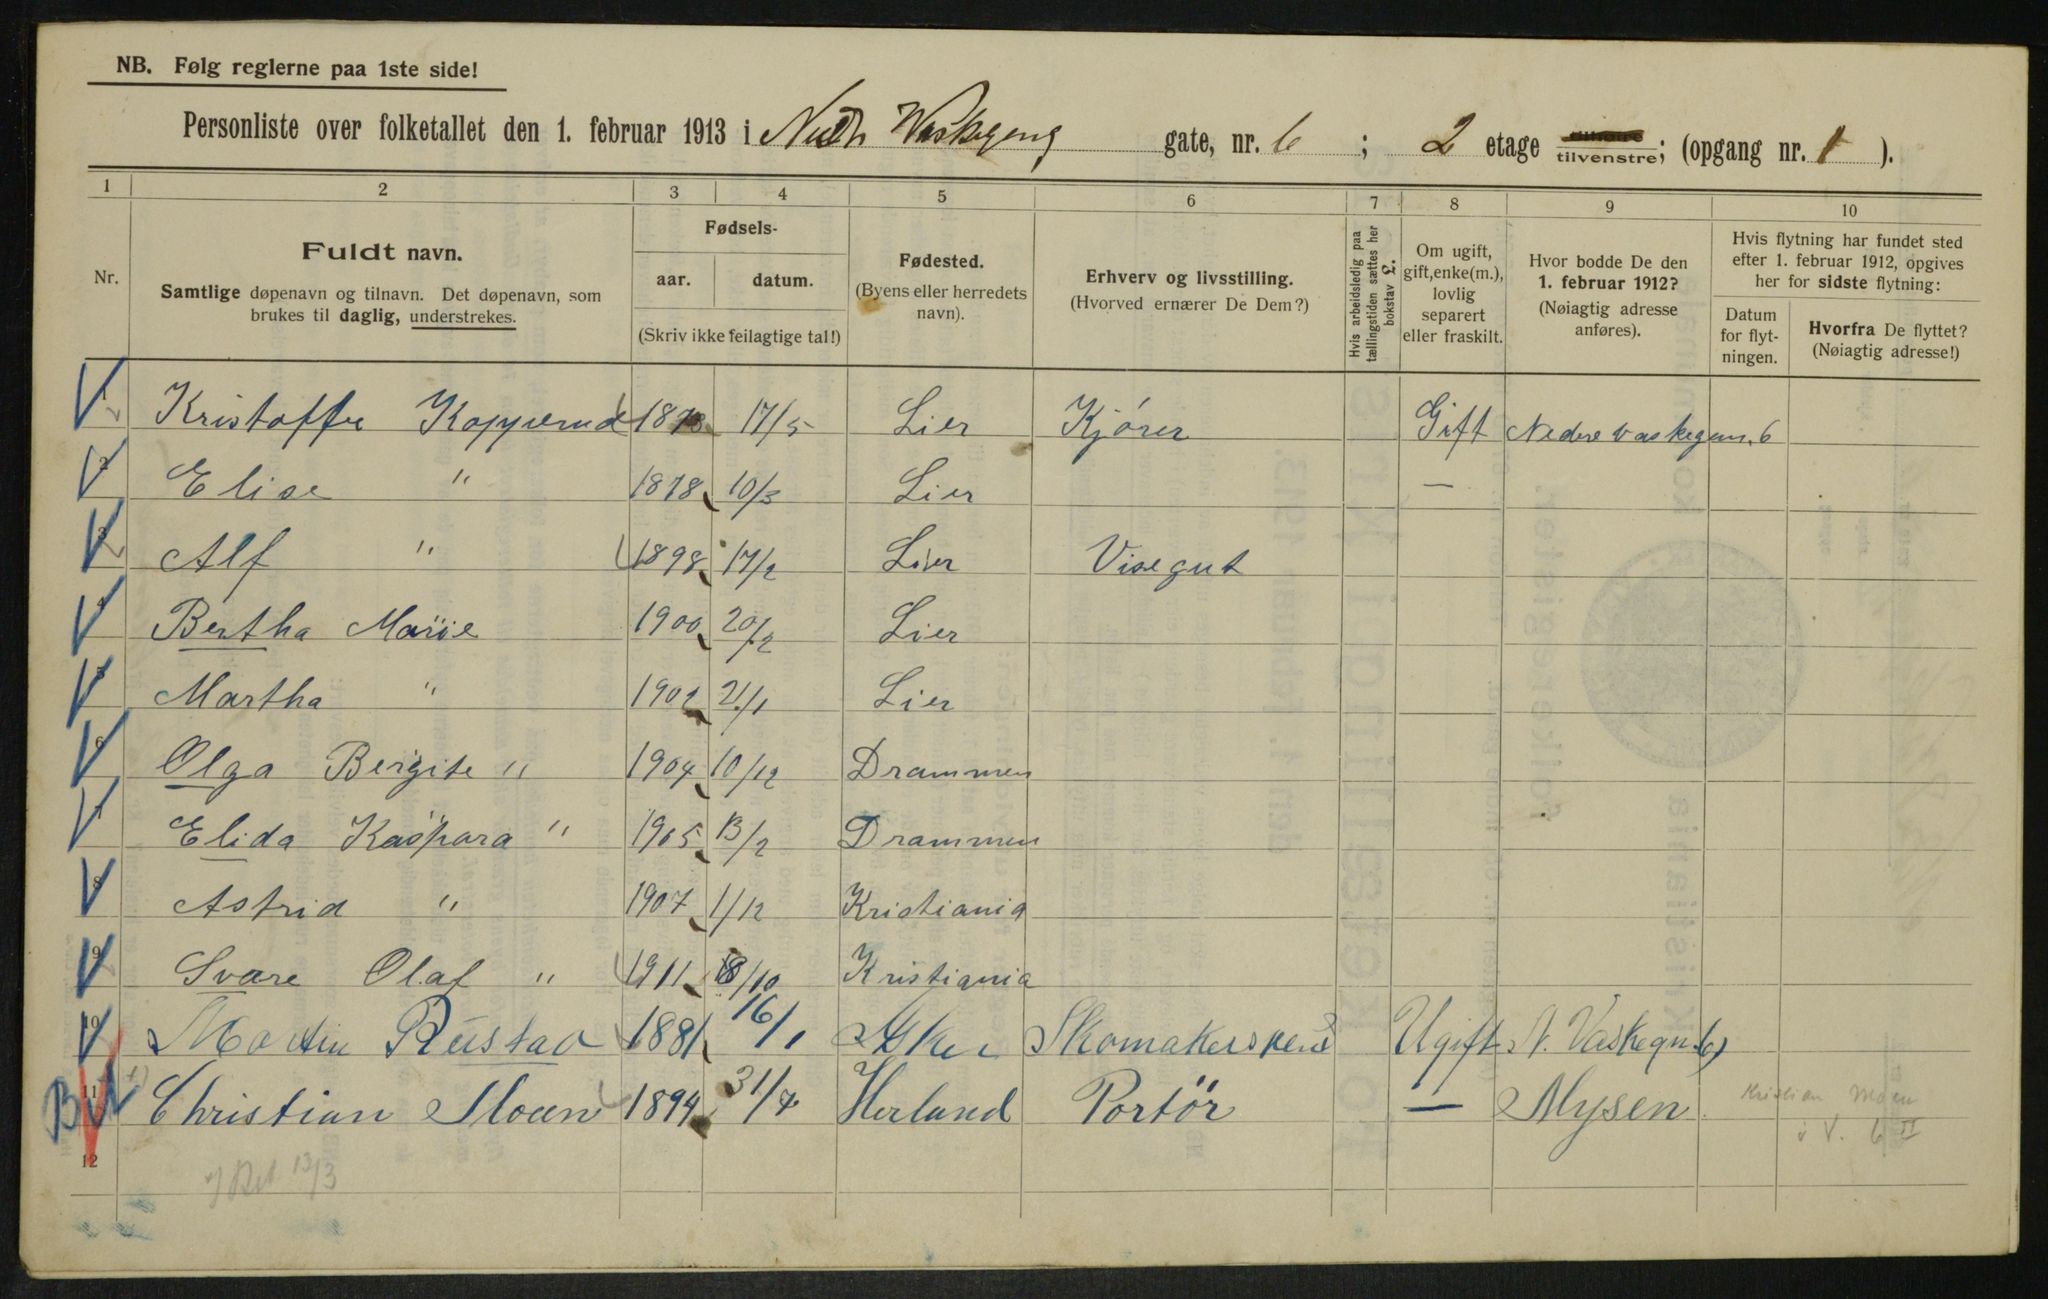 NB. Følg reglerne paa 1ste side!
Personliste over folketallet den 1. februar 1913 i Nedr Vaskegang gate, nr. 6 ; 2 etage tilvenstre; (opgang nr. 1 ).
1 2 3 4 5 6 7 8 9 10
Nr.
Fuldt navn.
Samtlige døpenavn og tilnavn. Det døpenavn, som
brukes til daglig, understrekes.
Fødsels-
aar. datum.
(Skriv ikke feilagtige tal!)
Fødested.
(Byens eller herredets
navn).
Erhverv og livsstilling.
(Hvorved ernærer De Dem?)
Hvis arbeidsledig paa
tællingstiden sættes her
bokstav L.
Om ugift,
gift, enke(m.),
lovlig
separert
eller fraskilt.
Hvor bodde De den
1. februar 1912?
(Nøiagtig adresse
anføres).
Hvis flytning har fundet sted
efter 1. februar 1912, opgives
her for sidste flytning:
Datum
for flyt-
ningen.
Hvorfra De flyttet?
(Nøiagtig adresse!)
1 Kristoffer Kopperud 1873 17/5 Lier Kjører Gift Nedre Vaskegan. 6
2 Elise " 1878 10/3 Lier —
3 Alf " 1898 17/2 Lier Visegut
4 Bertha Marie 1900 20/2 Lier
5 Martha " 1902 21/1 Lier
6 Olga Bergite " 1904 10/12 Drammen
7 Elida Kaspara " 1905 13/2 Drammen
8 Astrid " 1907 1/12 Kristiania
9 Svare Olaf " 1911 8/10 Kristiania
10 Martin Rustad 1881 16/1 Asker Skomakersvend Ugift N. Vaskegn. 6
11 Christian Moen 1894 31/7 Herland Portör — Mysen Kristian Moen
V. 6 II
12
13/3